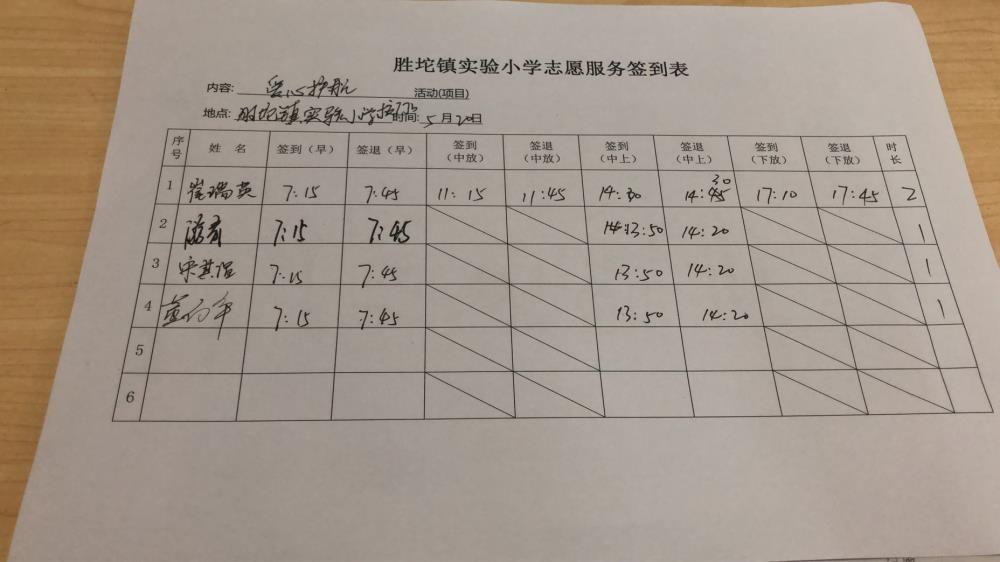 胜坨镇实验小学志愿服务签到表
内容: 爱心护航 活动(项目)
地点: 胜坨镇实验小学 时间: 5月20日
序号 姓 名 签到（早） 签退（早） 签到（中放） 签退（中放） 签到（中上） 签退（中上） 签到（下放） 签退（下放） 时长
1 崔瑞英 7:15 7:45 11:15 11:45 14:30 17:10 17:45 2
2 7:15 7:45 13:50 14:20 1
3 宋其滔 7:15 7:45 13:50 14:20 1
4 7:15 7:45 13:50 14:20 1
5
6